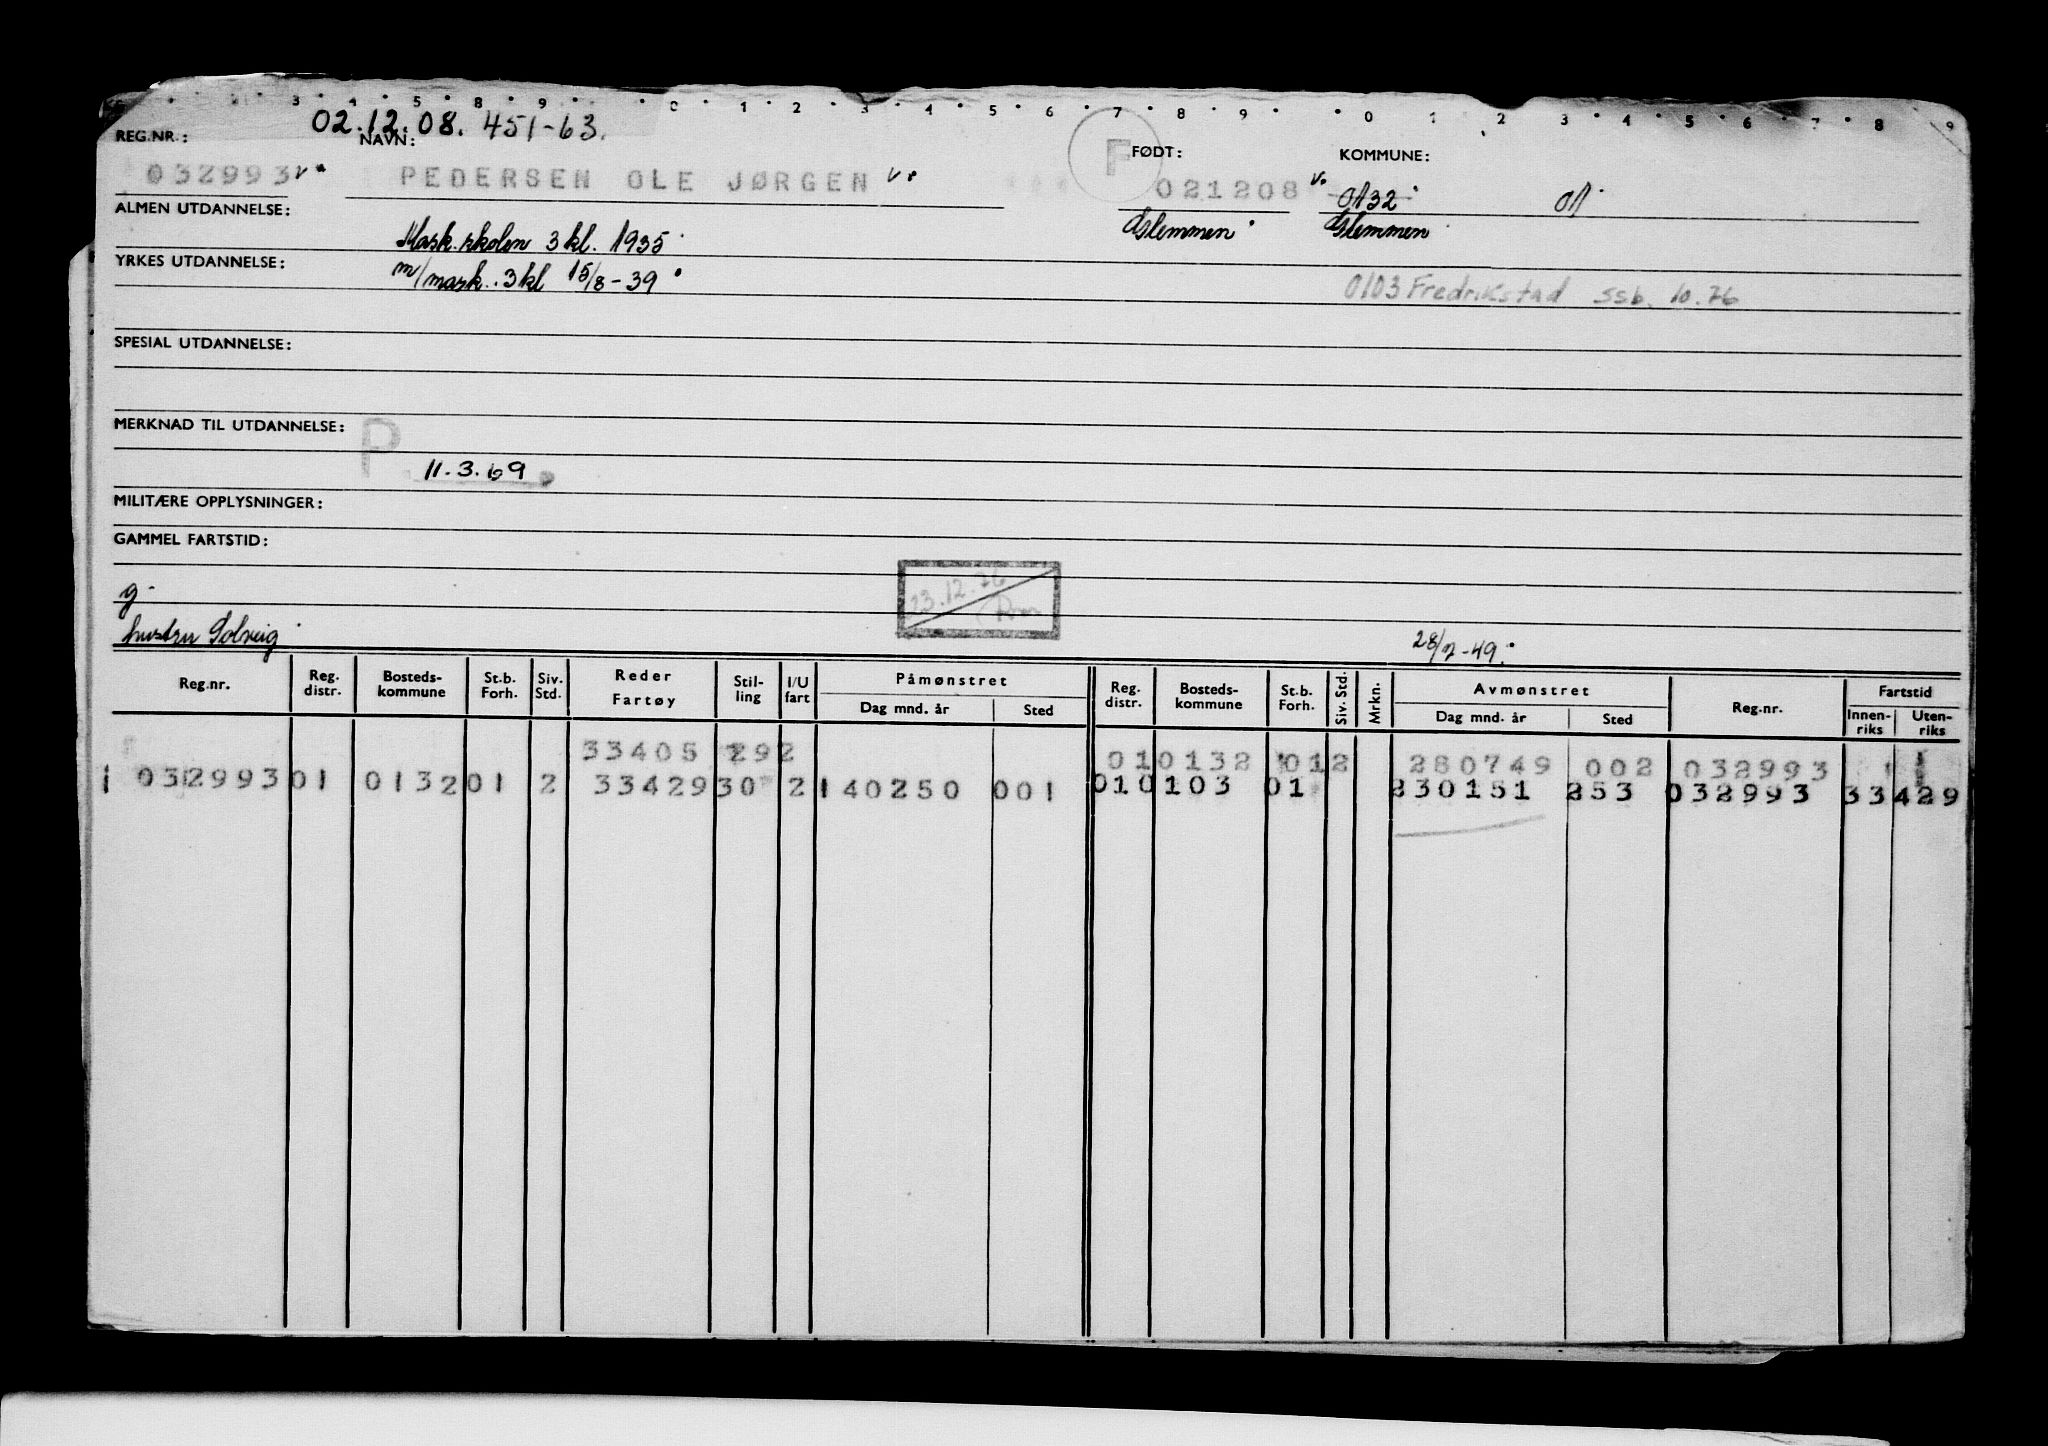 3 4 5 8 9 0 1 2 3 4 5 6 7 8 9 0 1 2 3 4 5 6 7 8 9
02.12.08. 451-63.
REG.NR.: NAVN: FØDT: KOMMUNE:
F
032993 PEDERSEN OLE JØRGEN 021208 0132 01
ALMEN UTDANNELSE: Mask.skolen 3 kl. 1935 Glemmen Glemmen
YRKES UTDANNELSE: m/mask. 3 kl 15/8-39 0103 Fredrikstad ssb. 10.76
SPESIAL UTDANNELSE:
MERKNAD TIL UTDANNELSE: P
11.3.69
MILITÆRE OPPLYSNINGER:
GAMMEL FARTSTID:
23.12.76
g.
hustru Solveig 28/7-49.
Reg.nr. Reg. distr. Bosteds-kommune St.b. Forh. Siv. Std. Reder Fartøy Stil-ling I/U fart Påmønstret Dag mnd. år Sted Reg. distr. Bosteds-kommune St.b. Forh. Siv. Std. Mrkn. Avmønstret Dag mnd. år Sted Reg.nr. Fartstid Innen-riks Uten-riks
33405 292 010132 012 280749 002 032993
1 032993 01 0132 01 2 33429 30 2 140250 001 01 0103 01 230151 253 032993 33429